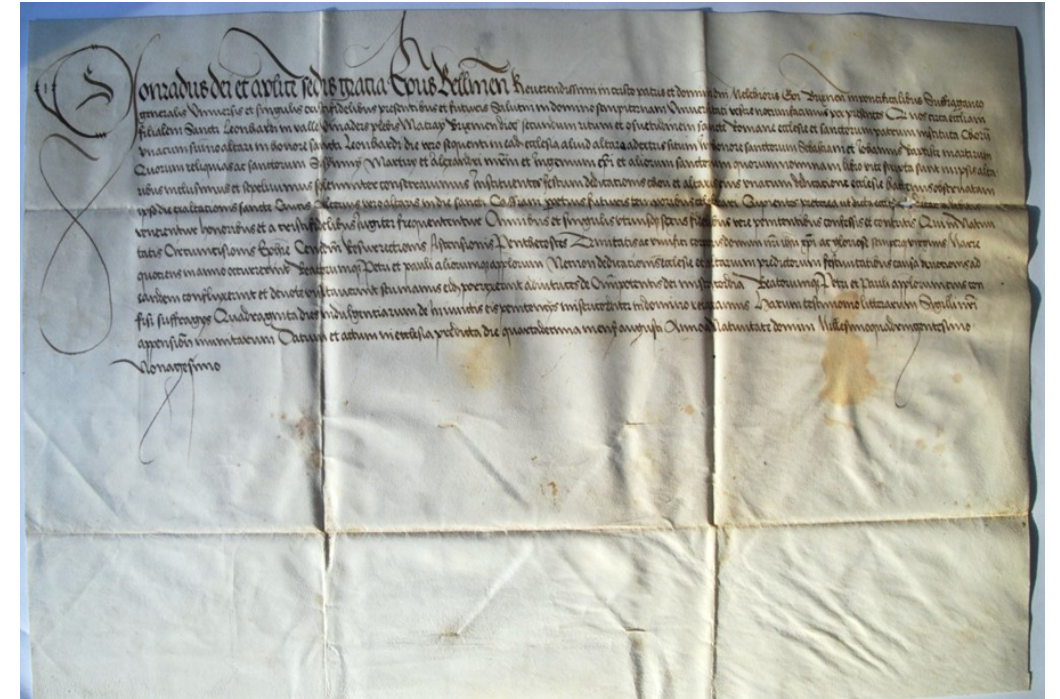 Conradus dei et aplice sedis gratia Epus Bellinen Reverendissimi in cristo patris et domini domini Melchioris Epi Brixinen in pontificalibus Suffraganeus
generalis Universis et singulis cristifidelibus presentibus et futuris Salutem in domino sempiternam Universitati vestre notum facimus per presentes Quod nos ecclesiam
filialem Sancti Leonhardi in valle plebis Matray Brixinen dioc secundum ritum et consuetudinem sancte Romane ecclesie et sanctorum patrum instituta Chorum
unacum summo altari in honore sancti Leonhardi die vero sequenti in eadem ecclesia aliud altare situm in honore sanctorum Sebastiani et Johannis Baptiste martirum
Quorum reliquias ac sanctorum Martirum et Alexandri et Ingenuini epi et aliorum sanctorum quorum nomina in libro vite scripta sunt in ipsis alta
ribus inclusimus et sepelivimus solemniter consecravimus Instituentes festum dedicationis chori et altaris eius unacum dedicatione ecclesie observandum
ipso die exaltationis sancte Crucis Alterius vero altaris in die sancti Cassiani perpetuis futuris temporibus celebrari Cupientes preterea ut dicta
venerentur honoribus et a cristifidelibus iugiter frequententur Omnibus et singulis utriusque sexus fidelibus vere penitentibus confessis et contritis Qui in Nativi
tatis Circumcisionis Epiphanie Resurrectionis Ascensionis Penthecostes Trinitatis ac corporis domini nri ihu xpi ac gloriose semper virginis Marie
quotiens in anno occurrerint Beatorumque Petri et pauli aliorumque aplorum Necnon dedicationis ecclesie et altarium predictorum festivitatibus causa devotionis ad
eandem confluxerint et devote visitaverint de Omnipotentis dei misericordia Beatorumque Petri et Pauli aplorum eius con
fisi suffragiis Quadraginta dies indulgentiarum de iniunctis eis penitentiis misericorditer in domino relaxamus Harum testimonio litterarum Sigilli nri
appensione munitarum Datum et actum in ecclesia predicta die quartadecima mensis augusti Anno a Nativitate domini Millesimoquadringentesimo
Nonagesimo